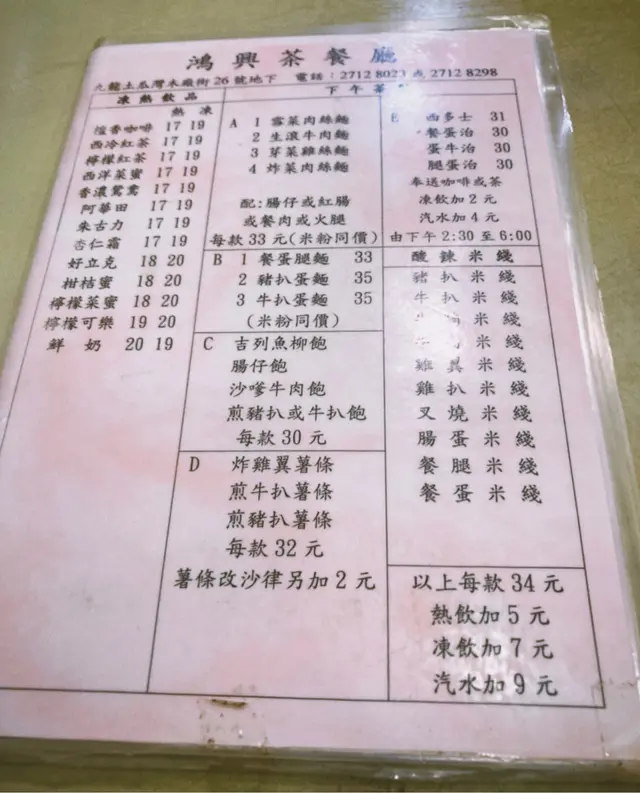 鴻興茶餐廳
九龍土瓜灣木廠街26號地下 電話:2712 8023 或 2712 8298
凍熱飲品
熱 凍
檀香咖啡 17 19
西冷紅茶 17 19
檸檬紅茶 17 19
西洋菜蜜 17 19
香濃鴛鴦 17 19
阿華田 17 19
朱古力 17 19
杏仁霜 17 19
好立克 18 20
柑桔蜜 18 20
檸檬菜蜜 18 20
檸檬可樂 19 20
鮮奶 20 19
下午茶
A 1 雪菜肉絲麵
2 生滾牛肉麵
3 芽菜雞絲麵
4 炸菜肉絲麵
配:腸仔或紅腸
或餐肉或火腿
每款33元(米粉同價)
B 1 餐蛋腿麵 33
2 豬扒蛋麵 35
3 牛扒蛋麵 35
(米粉同價)
C 吉列魚柳飽
腸仔飽
沙嗲牛肉飽
煎豬扒或牛扒飽
每款30元
D 炸雞翼薯條
煎牛扒薯條
煎豬扒薯條
每款32元
薯條改沙律另加2元
E 西多士 31
餐蛋治 30
蛋牛治 30
腿蛋治 30
奉送咖啡或茶
凍飲加2元
汽水加4元
由下午2:30至6:00
酸辣米綫
豬扒米綫
牛扒米綫
米綫
米綫
雞翼米綫
雞扒米綫
叉燒米綫
腸蛋米綫
餐腿米綫
餐蛋米綫
以上每款34元
熱飲加5元
凍飲加7元
汽水加9元